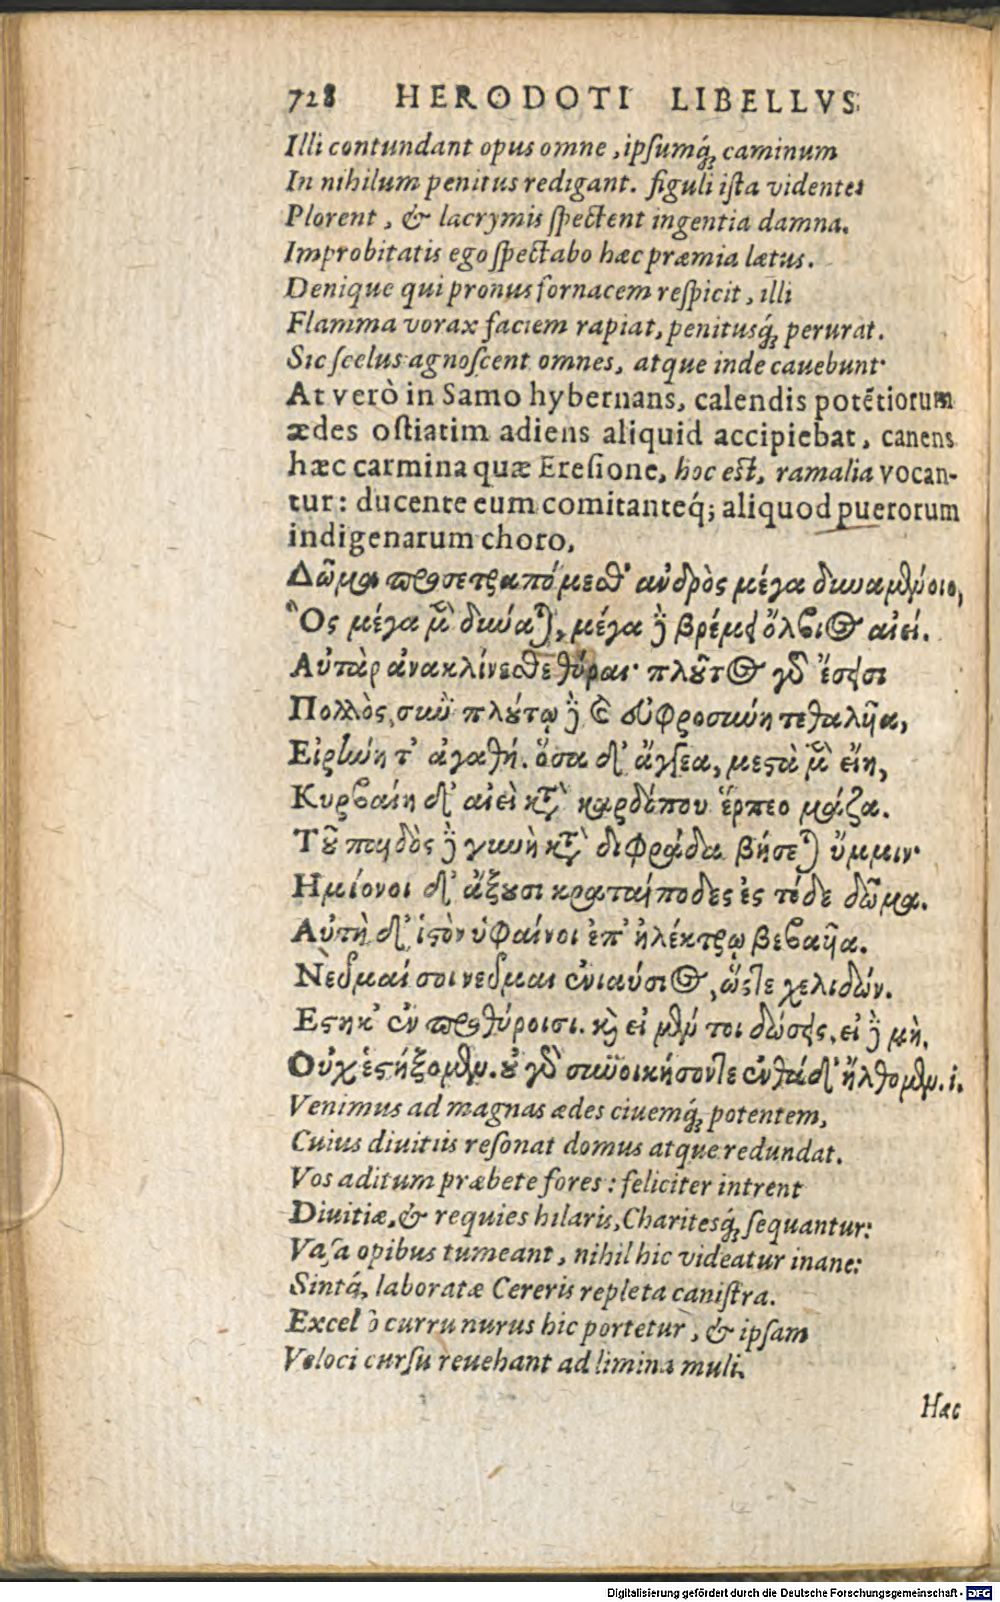 728 HERODOTI LIBELLVS
Illi contundant opus omne, ipſumq́; caminum
In nihilum penitus redigant. figuli iſta videntes
Plorent, & lacrymis ſpectent ingentia damna.
Improbitatis ego ſpectabo hæc præmia lætus.
Denique qui pronus fornacem reſpicit, illi
Flamma vorax faciem rapiat, penitusq́; perurat.
Sic ſcelus agnoſcent omnes, atque inde cauebunt
At verò in Samo hybernans, calendis potẽtiorum
ædes oſtiatim adiens aliquid accipiebat, canens
hæc carmina quæ Ereſione, hoc eſt, ramalia vocan-
tur: ducente eum comitanteq́; aliquod puerorum
indigenarum choro,
Δῶμα προσετραπόμεσθ' ἀνδρὸς μέγα δυναμένοιο,
Ὃς μέγα μὲν δύναται, μέγα δὲ βρέμει ὄλβιος αἰεί.
Αὐτὰρ ἀνακλίνεσθε θύραι· πλοῦτος γὰρ ἔσεισι
Πολλὸς, σὺν πλούτῳ δὲ καὶ εὐφροσύνη τεθαλῦα,
Εἰρήνη τ' ἀγαθή. ὅσα δ' ἄγγεα, μεστὰ μὲν εἴη,
Κυρβαίη δ' αἰεὶ κατὰ καρδόπου ἕρπεο μάζα.
Τοῦ παιδὸς δὲ γυνὴ κατὰ διφράδα βήσεται ὔμμιν·
Ημίονοι δ' ἄξουσι κραταίποδες ἐς τόδε δῶμα.
Αὐτὴ δ' ἱστὸν ὑφαίνοι ἐπ' ἠλέκτρῳ βεβαῦα.
Νεῦμαί σοι νεῦμαι ἐνιαύσιος, ὥστε χελιδών.
Εστηκ' ἐν προθύροισι. καὶ εἰ μέν τοι δώσεις, εἰ δὲ μὴ,
Οὐχ ἑστήξομεν. οὐ γὰρ συνοικήσοντες ἐνθάδ' ἤλθομεν. i.
Venimus ad magnas ædes ciuemq́; potentem,
Cuius diuitiis reſonat domus atque redundat.
Vos aditum præbete fores: feliciter intrent
Diuitiæ, & requies hilaris, Charitesq́; ſequantur:
Vaſa opibus tumeant, nihil hic videatur inane:
Sintq́; laboratæ Cereris repleta caniſtra.
Excelſo curru nurus hic portetur, & ipſam
Veloci curſu reuehant ad limina muli.
Hæc
Digitalisierung gefördert durch die Deutsche Forschungsgemeinschaft - DFG